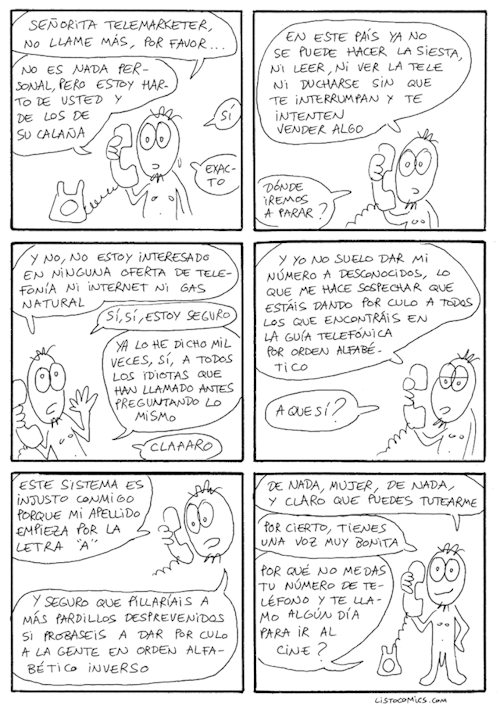 SEÑORITA TELEMARKETER,
NO LLAME MÁS, POR FAVOR...
NO ES NADA PER-
SONAL, PERO ESTOY HAR-
TO DE USTED Y
DE LOS DE
SU CALAÑA
SÍ
EXAC-
TO
EN ESTE PAÍS YA NO
SE PUEDE HACER LA SIESTA,
NI LEER, NI VER LA TELE
NI DUCHARSE SIN QUE
TE INTERRUMPAN Y TE
INTENTEN
VENDER ALGO
DÓNDE
IREMOS
A PARAR?
Y NO, NO ESTOY INTERESADO
EN NINGUNA OFERTA DE TELE-
FONÍA NI INTERNET NI GAS
NATURAL
SÍ, SÍ, ESTOY SEGURO
YA LO HE DICHO MIL
VECES, SÍ, A TODOS
LOS IDIOTAS QUE
HAN LLAMADO ANTES
PREGUNTANDO LO
MISMO
CLAAARO
Y YO NO SUELO DAR MI
NÚMERO A DESCONOCIDOS, LO
QUE ME HACE SOSPECHAR QUE
ESTÁIS DANDO POR CULO A TODOS
LOS QUE ENCONTRÁIS EN
LA GUÍA TELEFÓNICA
POR ORDEN ALFABÉ-
TICO
A QUE SÍ?
ESTE SISTEMA ES
INJUSTO CONMIGO
PORQUE MI APELLIDO
EMPIEZA POR LA
LETRA "A"
Y SEGURO QUE PILLARÍAIS A
MÁS PARDILLOS DESPREVENIDOS
SI PROBASEIS A DAR POR CULO
A LA GENTE EN ORDEN ALFA-
BÉTICO INVERSO
DE NADA, MUJER, DE NADA,
Y CLARO QUE PUEDES TUTEARME
POR CIERTO, TIENES
UNA VOZ MUY BONITA
POR QUÉ NO ME DAS
TU NÚMERO DE TE-
LÉFONO Y TE LLA-
MO ALGÚN DÍA
PARA IR AL
CINE?
LISTOCOMICS.COM